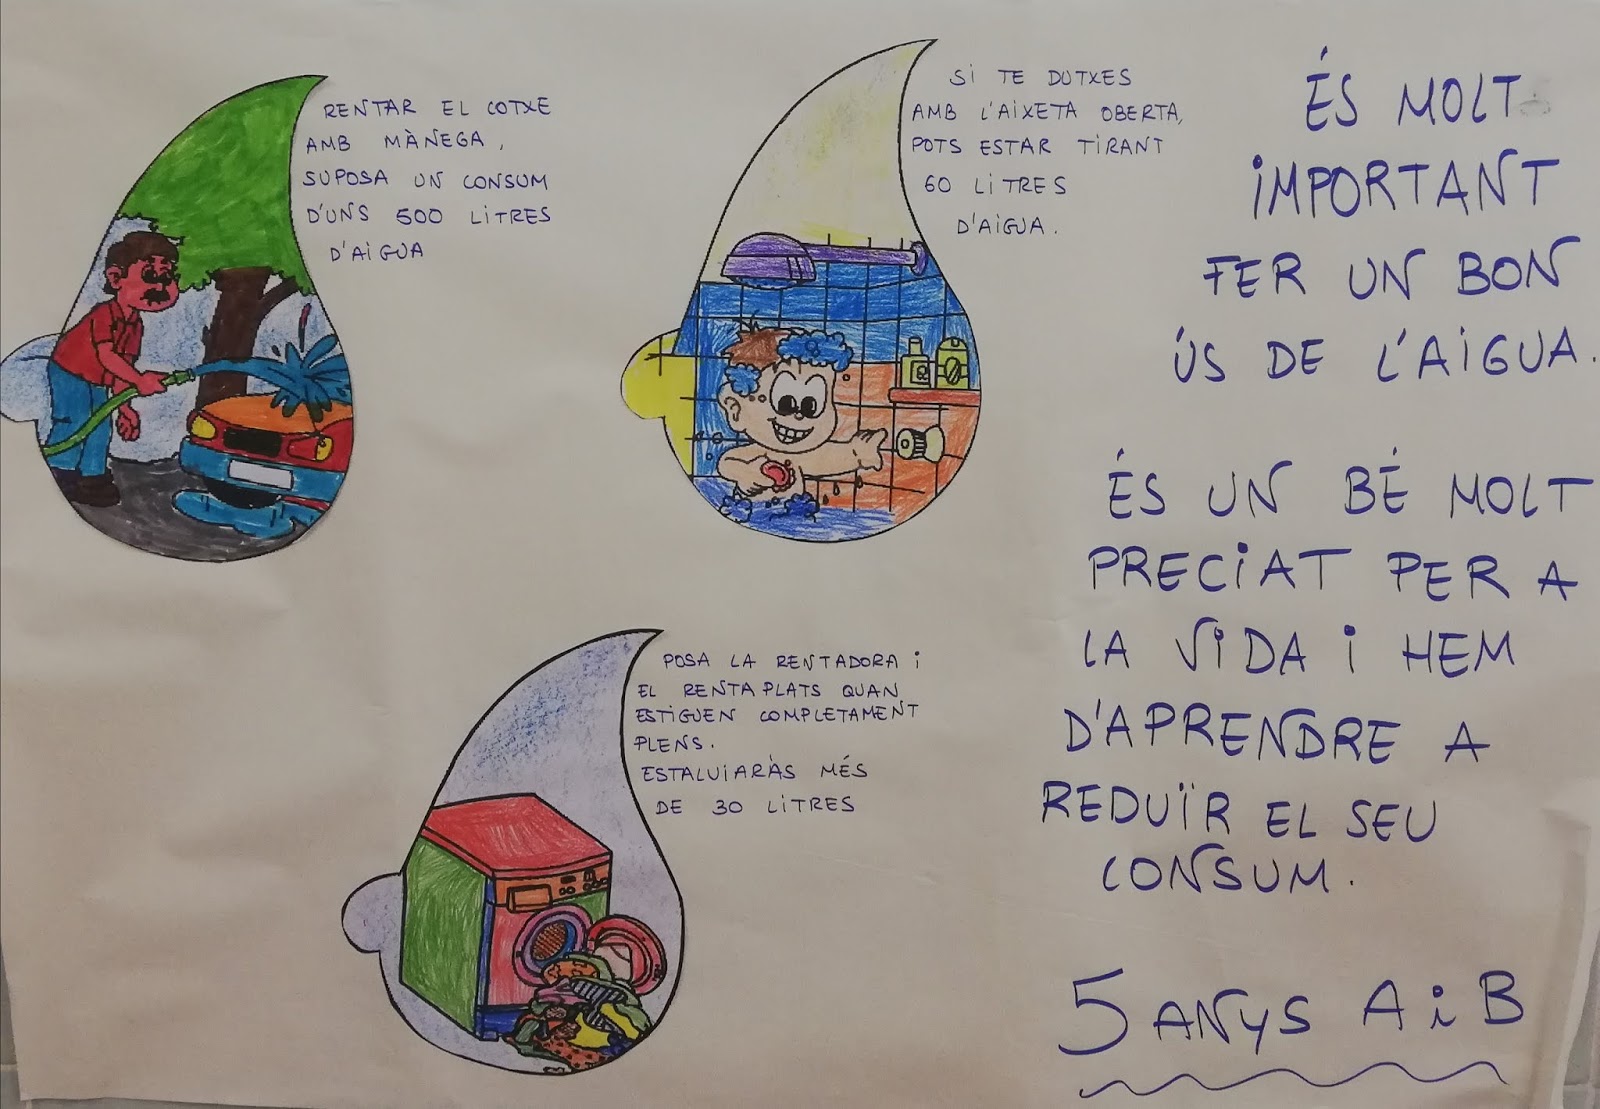 RENTAR EL COTXE
AMB MÀNEGA,
SUPOSA UN CONSUM
D'UNS 500 LITRES
D'AIGUA
SI TE DUTXES
AMB L'AIXETA OBERTA,
POTS ESTAR TIRANT
60 LITRES
D'AIGUA.
POSA LA RENTADORA I
EL RENTAPLATS QUAN
ESTIGUEN COMPLETAMENT
PLENS.
ESTALVIARÀS MÉS
DE 30 LITRES
ÉS MOLT
IMPORTANT
FER UN BON
ÚS DE L'AIGUA.
ÉS UN BÉ MOLT
PRECIAT PER A
LA VIDA I HEM
D'APRENDRE A
REDUÏR EL SEU
CONSUM.
5 ANYS A i B